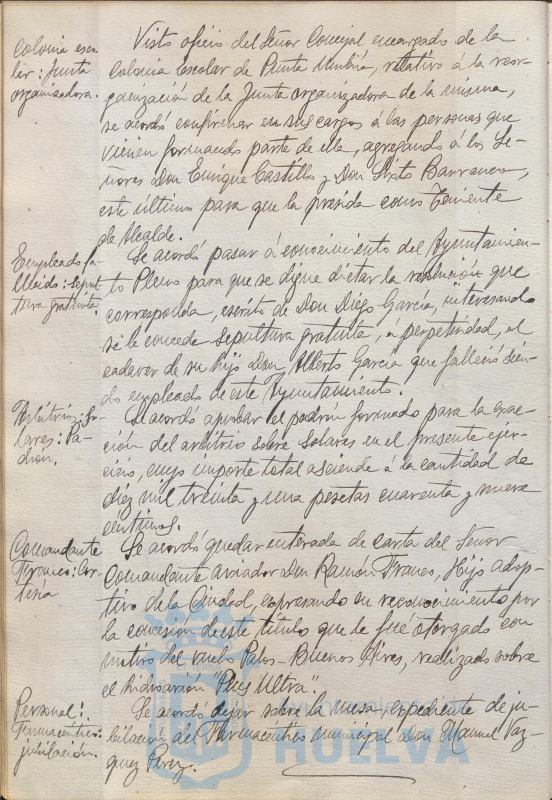 Colonia esco-
lar: Junta
organizadora.
Visto oficio del Señor Concejal encargado de la
Colonia Escolar de Punta Umbría, relativo á la reor-
ganización de la Junta organizadora de la misma,
se acordó confirmar en sus cargos á las personas que
vienen formando parte de ella, agregando á los Se-
ñores Don Enrique Castillo y Don Sixto Barranco,
este último para que la presida como Teniente
de Alcalde.
Empleado fa-
llecido: sepul-
tura gratuita.
Se acordó pasar á conocimiento del Ayuntamien-
to Pleno para que se digne dictar la resolución que
corresponda, escrito de Don Diego García, interesando
se le concede sepultura gratuita, á perpetuidad, al
cadaver de su hijo Don Alberto García que falleció sien-
do empleado de este Ayuntamiento.
Arbitrios: So-
lares: Pa-
drón.
Se acordó aprobar el padrón formado para la exac-
ción del arbitrio sobre Solares en el presente ejer-
cicio, cuyo importe total asciende á la cantidad de
diez mil treinta y una pesetas cuarenta y nueve
centimos.
Comandante
Franco: Cor-
tesia
Se acordó quedar enterada de carta del Señor
Comandante aviador Don Ramón Franco, Hijo adop-
tivo de la Ciudad, expresando su reconocimiento por
la concesión de este título que le fué otorgado con
motivo del vuelo Palos-Buenos Aires, realizado sobre
el hidroavión "Plus Ultra".
Personal:
Farmacéutico:
jubilación.
Se acordó dejar sobre la mesa, expediente de ju-
bilación del Farmacéutico municipal Don Manuel Vaz-
quez Perez.
HUELVA